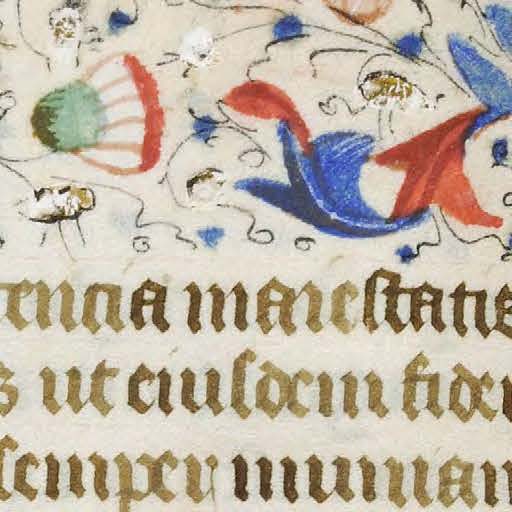 tencia maiestatis
ut eiusdem fidei
semper muniam